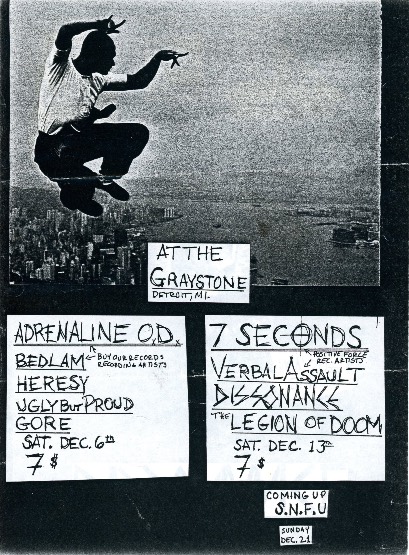 AT THE
GRAYSTONE
DETROIT, MI.
ADRENALINE O.D.
BEDLAM
BUY OUR RECORDS
RECORDING ARTISTS
HERESY
UGLY BUT PROUD
GORE
SAT. DEC. 6th
7$
7 SECONDS
POSITIVE FORCE
REC. ARTISTS
VERBAL ASSAULT
DISSONANCE
THE LEGION OF DOOM
SAT. DEC. 13th
7$
COMING UP
S.N.F.U
SUNDAY
DEC. 21